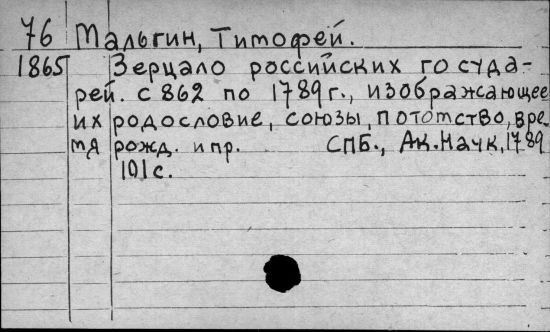 76 Мальгин, Тимофей.
1865 Зерцало российских госуда-
рей. с 862 по 1789 г., изображающее
их родословие, союзы, потомство, вре-
мя рожд. и пр. СПБ., Ак. Наук, 1789
101 с.